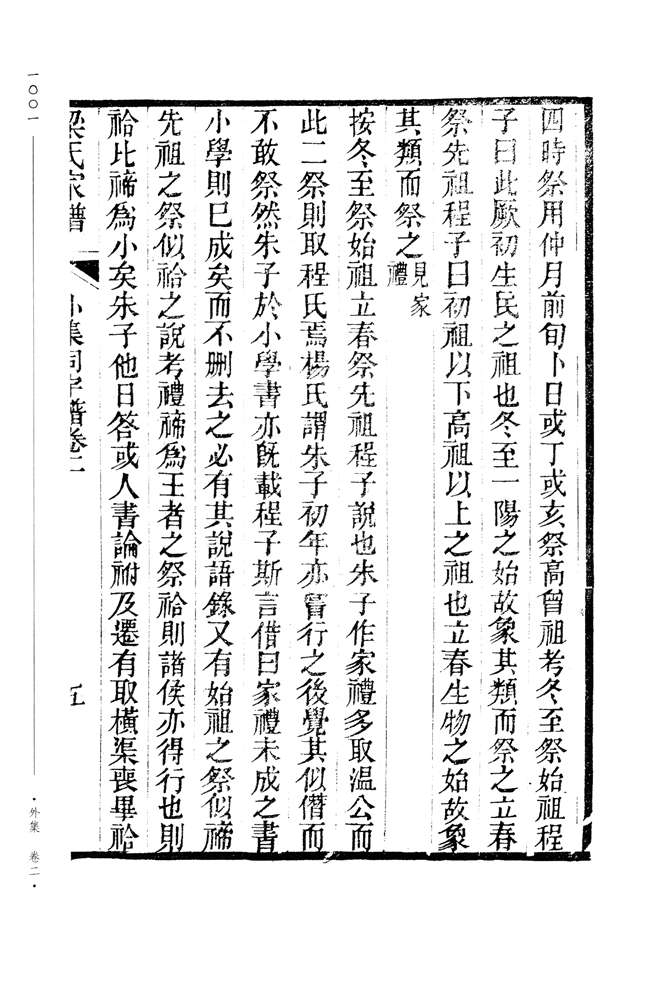 四時祭用仲月前旬卜日或丁或亥祭高曾祖考冬至祭始祖程
子曰此厥初生民之祖也冬至一陽之始故象其類而祭之立春
祭先祖程子曰初祖以下高祖以上之祖也立春生物之始故象
其類而祭之見家禮
按冬至祭始祖立春祭先祖程子說也朱子作家禮多取温公而
此二祭則取程氏焉楊氏謂朱子初年亦嘗行之後覺其似僭而
不敢祭然朱子於小學書亦旣載程子斯言借曰家禮未成之書
小學則已成矣而不删去之必有其說語錄又有始祖之祭似禘
先祖之祭似祫之說考禮禘爲王者之祭祫則諸侯亦得行也則
祫比禘爲小矣朱子他日答或人書論祔及遷有取橫渠喪畢祫
梁氏家譜
外集同宇譜卷二
五
一〇〇一
·外集 卷二·